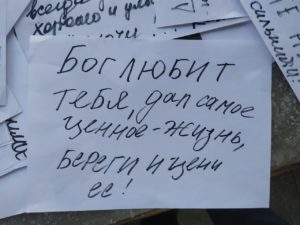 всегда
хорошо и улы
сильный
Бог любит
тебя, дал самое
ценное - жизнь,
береги и цени
ее!